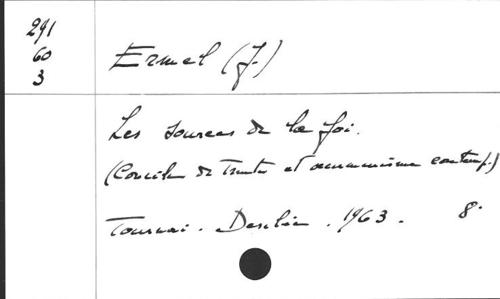 291
60
3
Ermel (J.)
Les sources de la foi.
(Concile de Trente et oecuménisme contemp.)
Tournai. Desclée. 1963. 8°